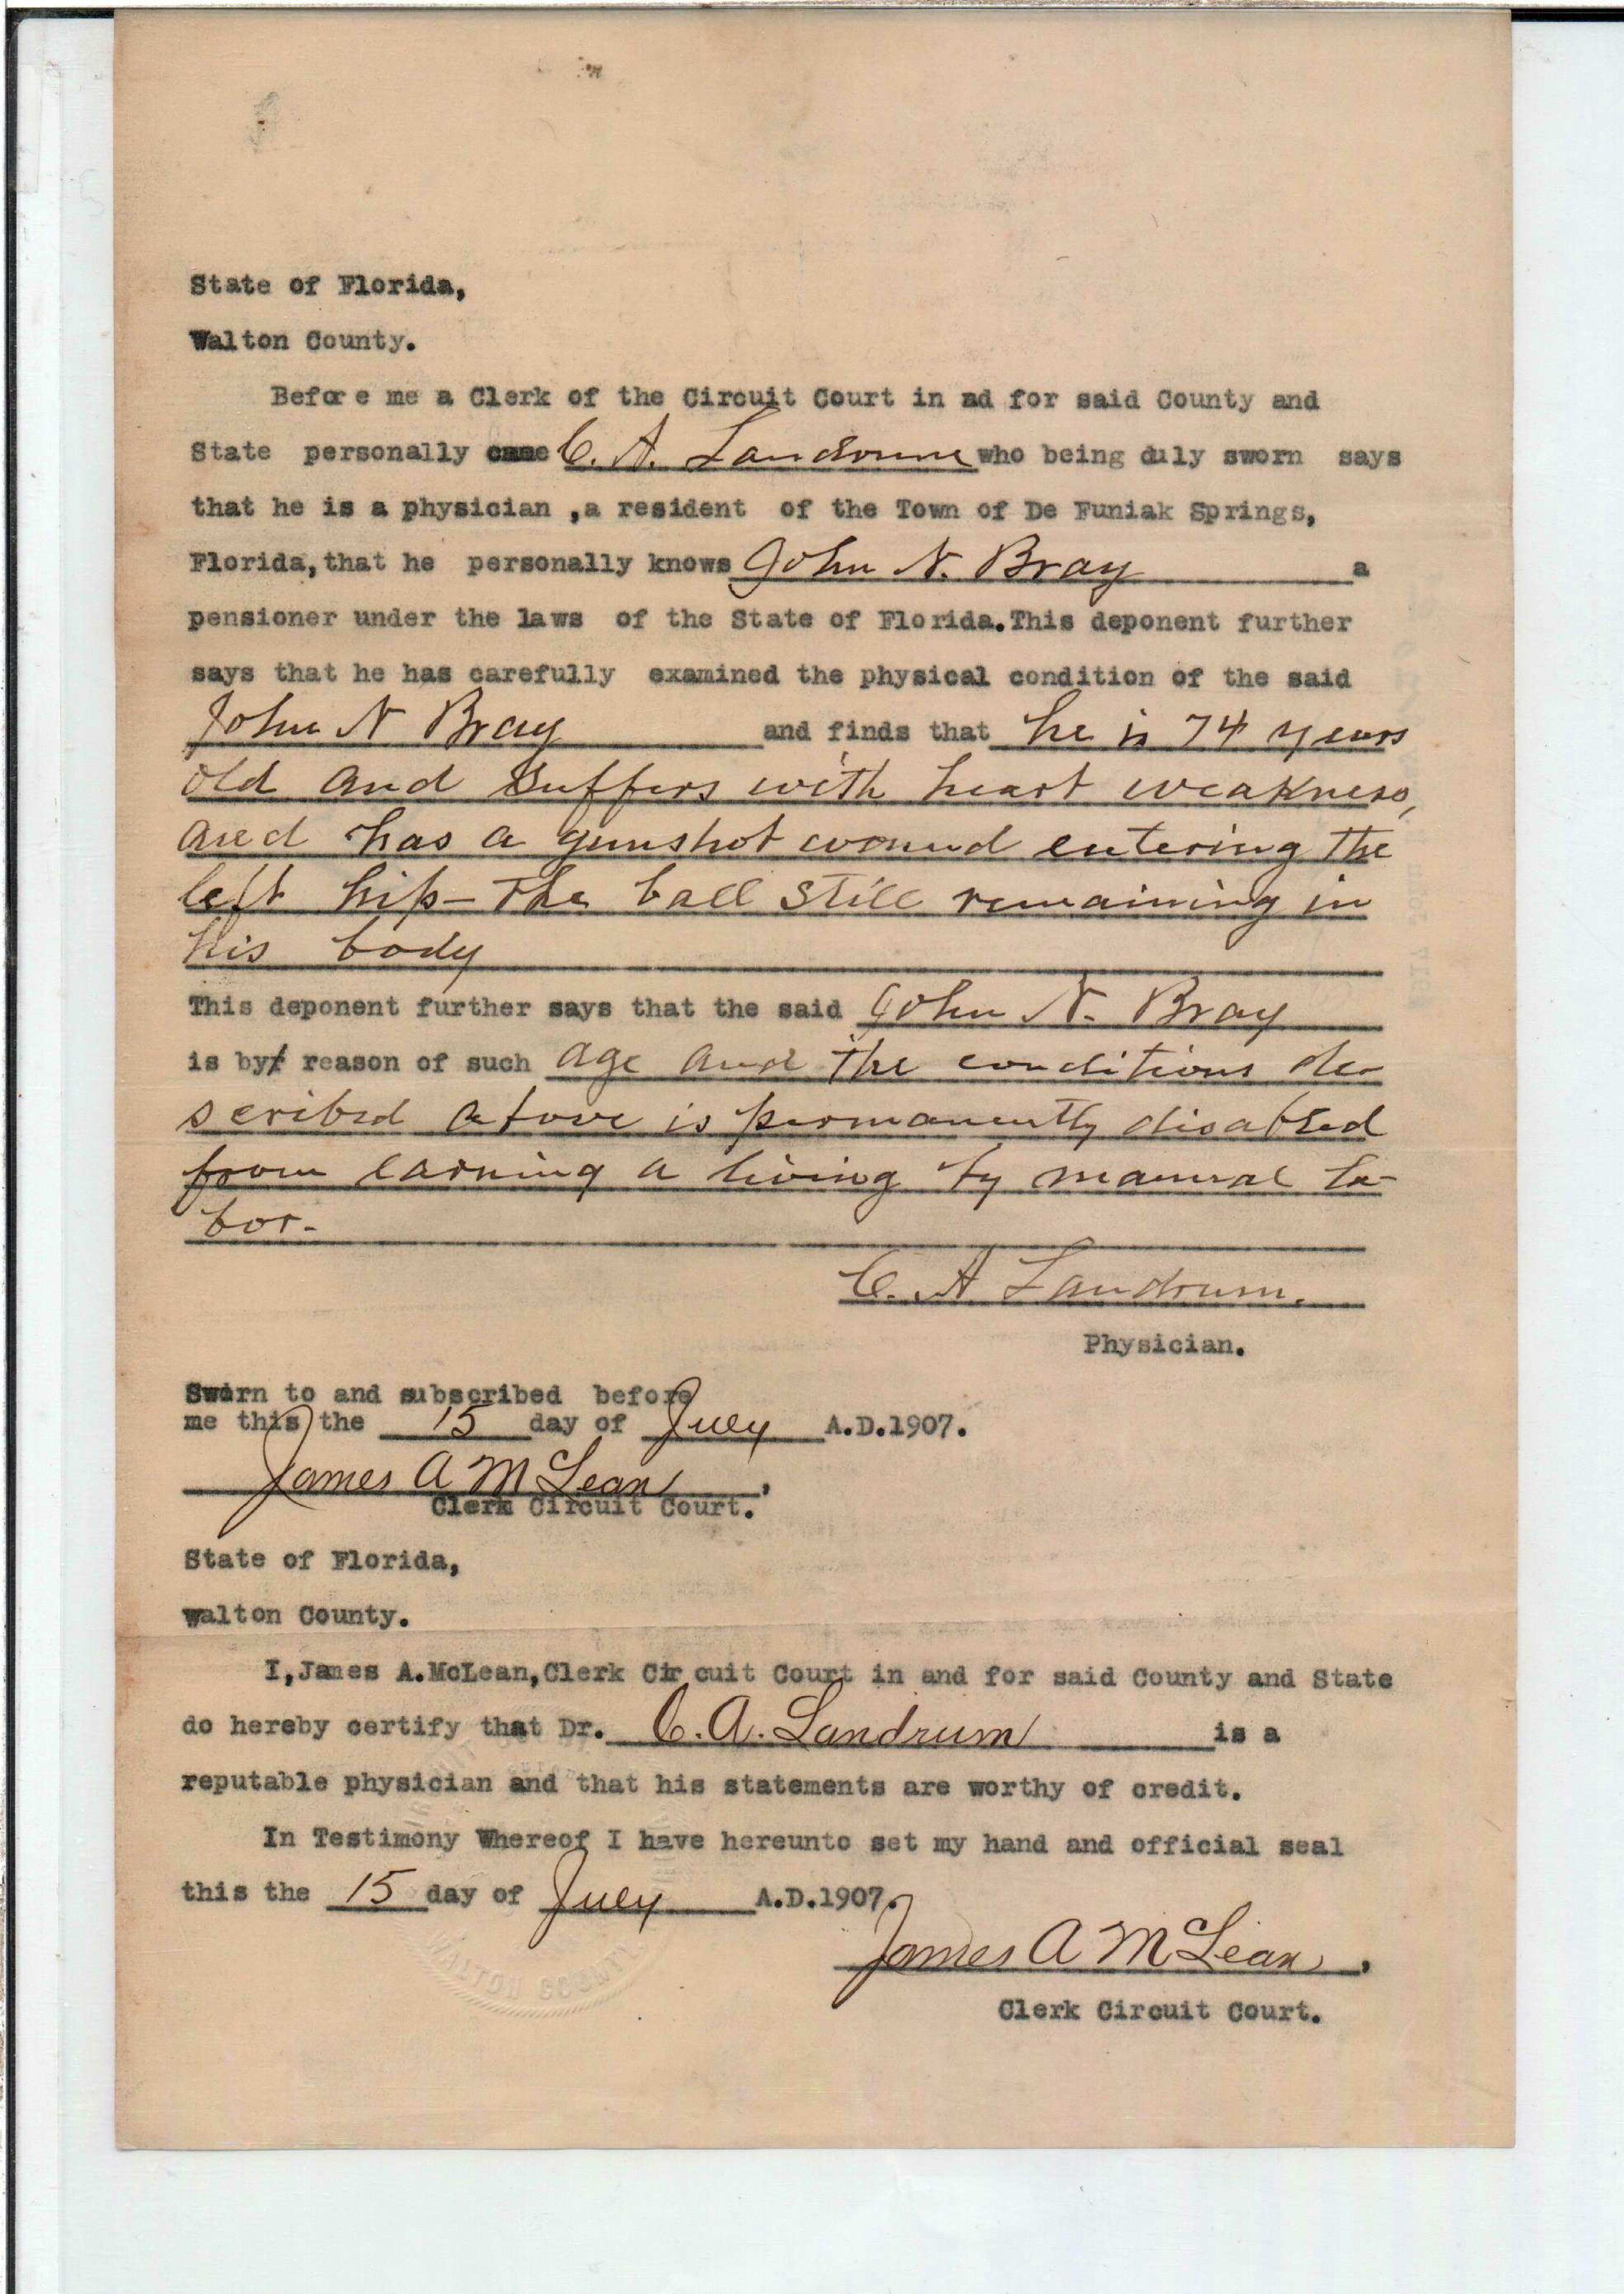 State of Florida,
Walton County.
Before me a Clerk of the Circuit Court in ad for said County and
State personally came C. A. Landrum who being duly sworn says
that he is a physician ,a resident of the Town of De Funiak Springs,
Florida,that he personally knows John N. Bray a
pensioner under the laws of the State of Florida.This deponent further
says that he has carefully examined the physical condition of the said
John N Bray and finds that he is 74 years
old and suffers with heart weakness,
and has a gunshot wound entering the
left hip - The ball still remaining in
his body
This deponent further says that the said John N. Bray
is by reason of such age and the conditions de-
scribed above is permanently disabled
from earning a living by manual la-
bor.
C. A Landrum.
Physician.
Sworn to and subscribed before
me this the 15 day of July A.D.1907.
James A McLean,
Clerk Circuit Court.
State of Florida,
Walton County.
I,James A.McLean,Clerk Cir cuit Court in and for said County and State
do hereby certify that Dr. C. A. Landrum is a
reputable physician and that his statements are worthy of credit.
In Testimony Whereof I have hereunto set my hand and official seal
this the 15 day of July A.D.1907.
James A McLean,
Clerk Circuit Court.
WALTON COUNTY